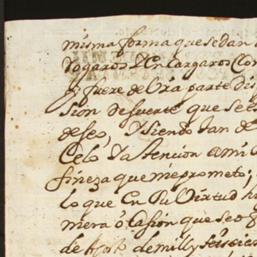 misma forma que se dan
rogaros, Y En cargaros Con
y fuere de Vra parte dis
sion de suerte que se
deseo, Y siendo tan de
Celo Ya tencion a mi
fineza que me prometo;
lo que En Su Virtud h
mera ocasion que se o
de de mill y seis